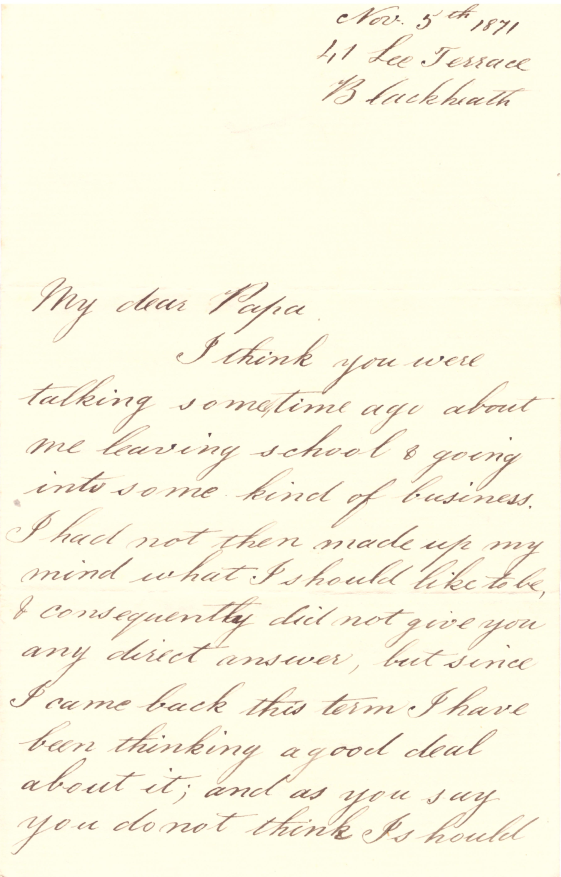 Nov. 5th 1871
41 Lee Terrace
Blackheath
My dear Papa
I think you were
talking some time ago about
me leaving school & going
into some kind of business.
I had not then made up my
mind what I should like to be,
& consequently did not give you
any direct answer, but since
I came back this term I have
been thinking a good deal
about it; and as you say
you do not think I should